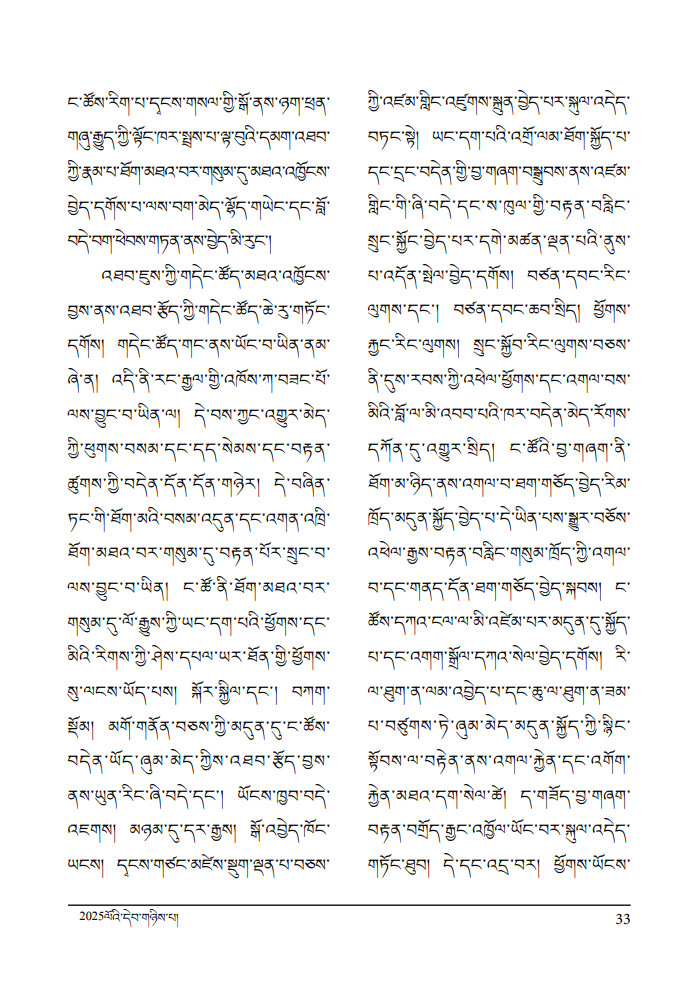 ང་ཚོས་རིག་པ་དྭངས་གསལ་གྱི་སྒོ་ནས་ཉག་ཕྲན་
གཞུ་རྒྱུད་ཀྱི་ལྟོང་ཁར་སྤྲས་པ་ལྟ་བུའི་དམག་འཐབ་
ཀྱི་རྣམ་པ་ཐོག་མཐའ་བར་གསུམ་དུ་མཐའ་འཁྱོངས་
བྱེད་དགོས་པ་ལས་བག་མེད་ལྷོད་གཡེང་དང་བློ་
བདེ་བག་ཕེབས་གཏན་ནས་བྱེད་མི་རུང་།
འཐབ་ཇུས་ཀྱི་གདེང་ཚོད་མཐའ་འཁྱོངས་
བྱས་ནས་འཐབ་རྩོད་ཀྱི་གདེང་ཚོད་ཆེ་རུ་གཏོང་
དགོས། གདེང་ཚོད་གང་ནས་ཡོང་བ་ཡིན་ནམ་
ཞེ་ན། འདི་ནི་རང་རྒྱལ་གྱི་འཁོས་ཀ་བཟང་པོ་
ལས་བྱུང་བ་ཡིན་ལ། དེ་བས་ཀྱང་འགྱུར་མེད་
ཀྱི་ཕུགས་བསམ་དང་དད་སེམས་དང་བརྟན་
ཚུགས་ཀྱི་བདེན་དོན་དོན་གཉེར། དེ་བཞིན་
ཏང་གི་ཐོག་མའི་བསམ་འདུན་དང་འགན་འཁྲི་
ཐོག་མཐའ་བར་གསུམ་དུ་བརྟན་པོར་སྲུང་བ་
ལས་བྱུང་བ་ཡིན། ང་ཚོ་ནི་ཐོག་མཐའ་བར་
གསུམ་དུ་ལོ་རྒྱུས་ཀྱི་ཡང་དག་པའི་ཕྱོགས་དང་
མིའི་རིགས་ཀྱི་ཤེས་དཔལ་ཡར་ཐོན་གྱི་ཕྱོགས་
སུ་ལངས་ཡོད་པས། སྐོར་སྐྱིལ་དང་། བཀག་
སྡོམ། མགོ་གནོན་བཅས་ཀྱི་མདུན་དུ་ང་ཚོས་
བདེན་ཡོད་ཞུམ་མེད་ཀྱིས་འཐབ་རྩོད་བྱས་
ནས་ཡུན་རིང་ཞི་བདེ་དང་། ཡོངས་ཁྱབ་བདེ་
འཇགས། མཉམ་དུ་དར་རྒྱས། སྒོ་འབྱེད་ཁོང་
ཡངས། དྭངས་གཙང་མཛེས་སྡུག་ལྡན་པ་བཅས་
ཀྱི་འཛམ་གླིང་འཛུགས་སྐྲུན་བྱེད་པར་སྐུལ་འདེད་
བཏང་སྟེ། ཡང་དག་པའི་འགྲོ་ལམ་ཐོག་སྐྱོད་པ་
དང་དྲང་བདེན་གྱི་བྱ་གཞག་བསྒྲུབས་ནས་འཛམ་
གླིང་གི་ཞི་བདེ་དང་ས་ཁུལ་གྱི་བརྟན་བརླིང་
སྲུང་སྐྱོང་བྱེད་པར་དགེ་མཚན་ལྡན་པའི་ནུས་
པ་འདོན་སྤེལ་བྱེད་དགོས། བཙན་དབང་རིང་
ལུགས་དང་། བཙན་དབང་ཆབ་སྲིད། ཕྱོགས་
རྐྱང་རིང་ལུགས། སྲུང་སྐྱོབ་རིང་ལུགས་བཅས་
ནི་དུས་རབས་ཀྱི་འཕེལ་ཕྱོགས་དང་འགལ་བས་
མིའི་བློ་ལ་མི་འབབ་པའི་ཁར་བདེན་མེད་རོགས་
དཀོན་དུ་འགྱུར་སྲིད། ང་ཚོའི་བྱ་གཞག་ནི་
ཐོག་མ་ཉིད་ནས་འགལ་བ་ཐག་གཅོད་བྱེད་རིམ་
ཁྲོད་མདུན་སྐྱོད་བྱེད་པ་དེ་ཡིན་པས་སྒྱུར་བཅོས་
འཕེལ་རྒྱས་བརྟན་བརླིང་གསུམ་ཁྲོད་ཀྱི་འགལ་
བ་དང་གནད་དོན་ཐག་གཅོད་བྱེད་སྐབས། ང་
ཚོས་དཀའ་ངལ་ལ་མི་འཛེམ་པར་མདུན་དུ་སྐྱོད་
པ་དང་འགག་སྒྲོལ་དཀའ་སེལ་བྱེད་དགོས། རི་
ལ་ཐུག་ན་ལམ་འབྱེད་པ་དང་ཆུ་ལ་ཐུག་ན་ཟམ་
པ་བཙུགས་ཏེ་ཞུམ་མེད་མདུན་སྐྱོད་ཀྱི་སྙིང་
སྟོབས་ལ་བརྟེན་ནས་འགལ་རྐྱེན་དང་འགོག་
རྐྱེན་མཐའ་དག་སེལ་ཚེ། ད་གཟོད་བྱ་གཞག་
བརྟན་བགྲོད་རྒྱང་འཁྱོལ་ཡོང་བར་སྐུལ་འདེད་
གཏོང་ཐུབ། དེ་དང་འདྲ་བར། ཕྱོགས་ཡོངས་
2025ལོའི་དེབ་གཉིས་པ།
33